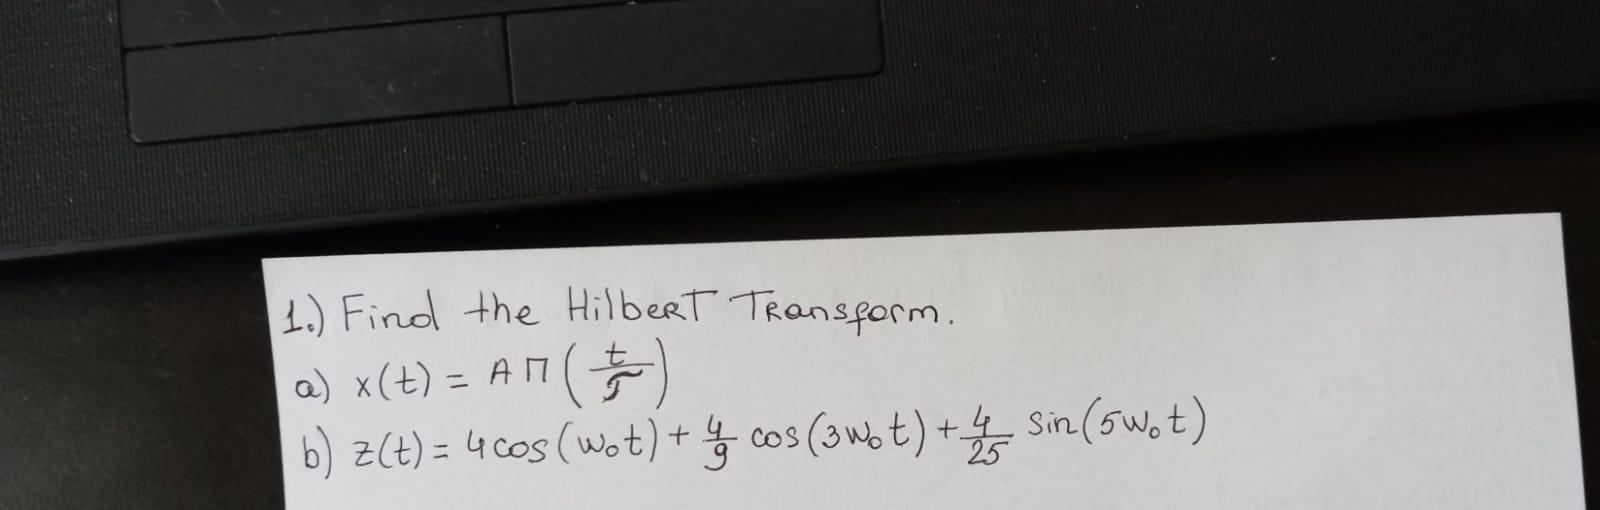 1.) Find the Hilbert Transform.
a) x(t) = A Π (t/τ)
b) z(t) = 4 cos (w₀t) + 4/9 cos (3w₀t) + 4/25 sin (5w₀t)